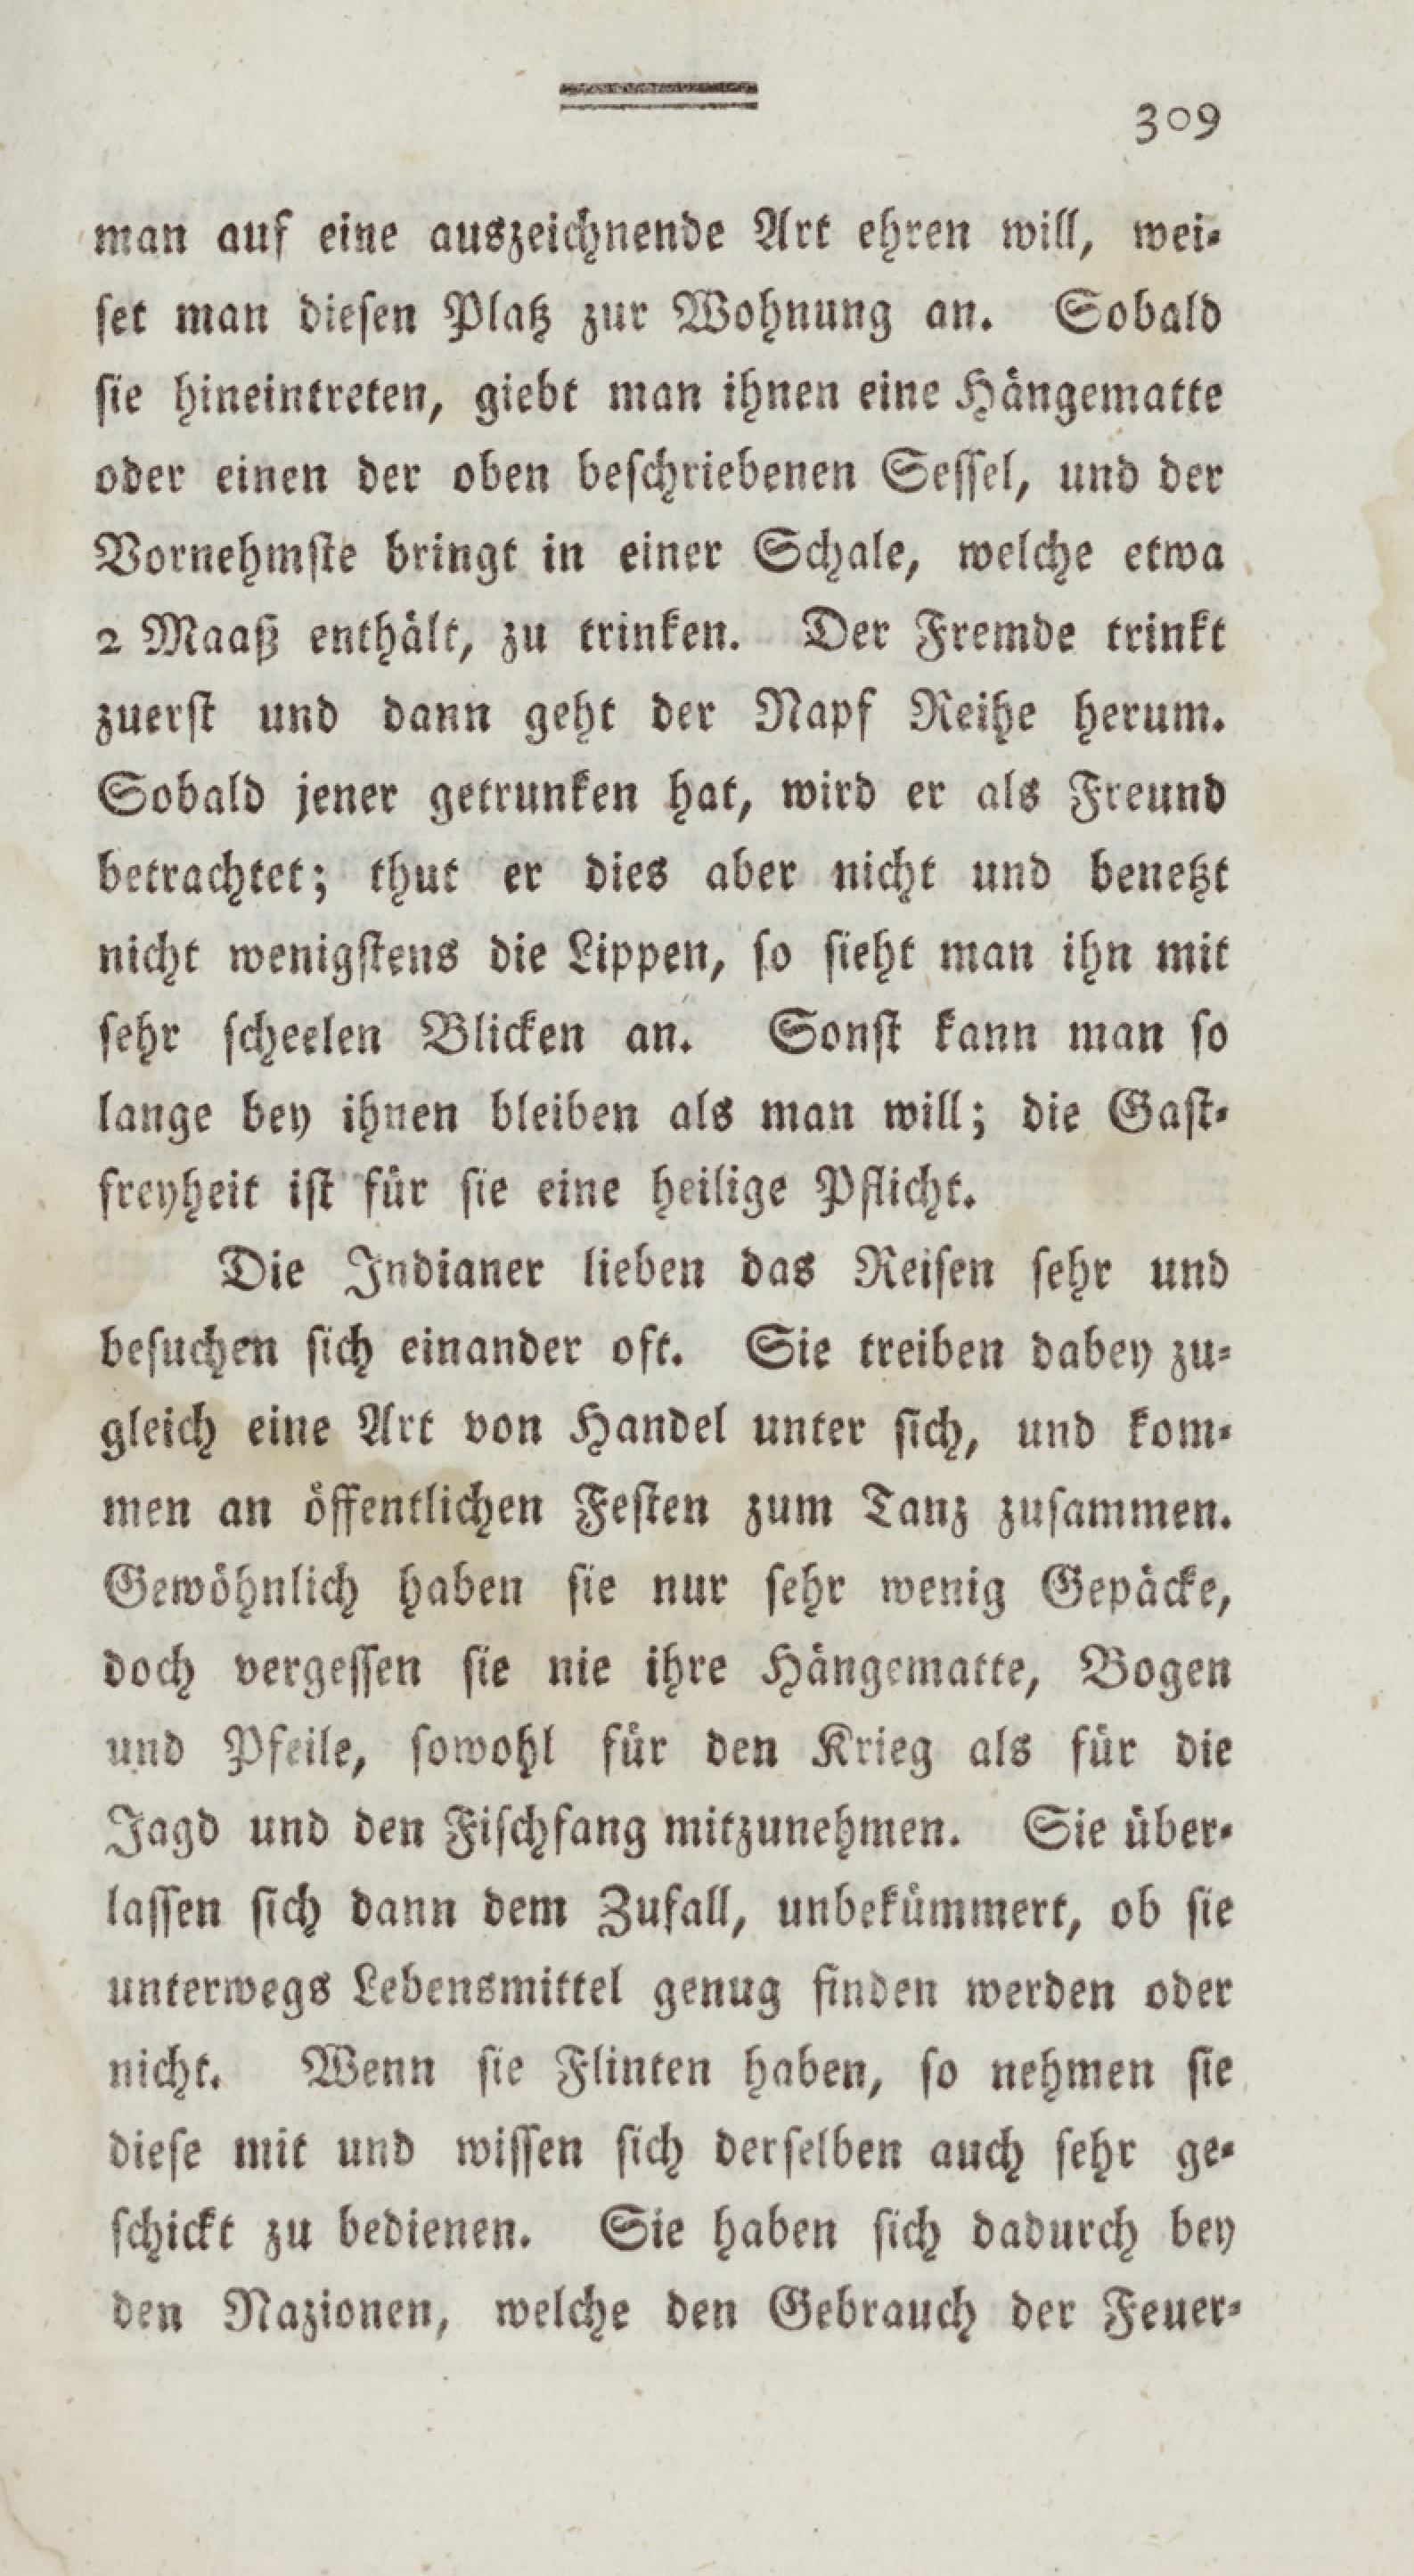 309
man auf eine auszeichnende Art ehren will, wei-
set man diesen Platz zur Wohnung an. Sobald
sie hineintreten, giebt man ihnen eine Hängematte
oder einen der oben beschriebenen Sessel, und der
Vornehmste bringt in einer Schale, welche etwa
2 Maaß enthält, zu trinken. Der Fremde trinkt
zuerst und dann geht der Napf Reihe herum.
Sobald jener getrunken hat, wird er als Freund
betrachtet; thut er dies aber nicht und benetzt
nicht wenigstens die Lippen, so sieht man ihn mit
sehr scheelen Blicken an. Sonst kann man so
lange bey ihnen bleiben als man will; die Gast-
freyheit ist für sie eine heilige Pflicht.
Die Indianer lieben das Reisen sehr und
besuchen sich einander oft. Sie treiben dabey zu-
gleich eine Art von Handel unter sich, und kom-
men an öffentlichen Festen zum Tanz zusammen.
Gewöhnlich haben sie nur sehr wenig Gepäcke,
doch vergessen sie nie ihre Hängematte, Bogen
und Pfeile, sowohl für den Krieg als für die
Jagd und den Fischfang mitzunehmen. Sie über-
lassen sich dann dem Zufall, unbekümmert, ob sie
unterwegs Lebensmittel genug finden werden oder
nicht. Wenn sie Flinten haben, so nehmen sie
diese mit und wissen sich derselben auch sehr ge-
schickt zu bedienen. Sie haben sich dadurch bey
den Nazionen, welche den Gebrauch der Feuer-